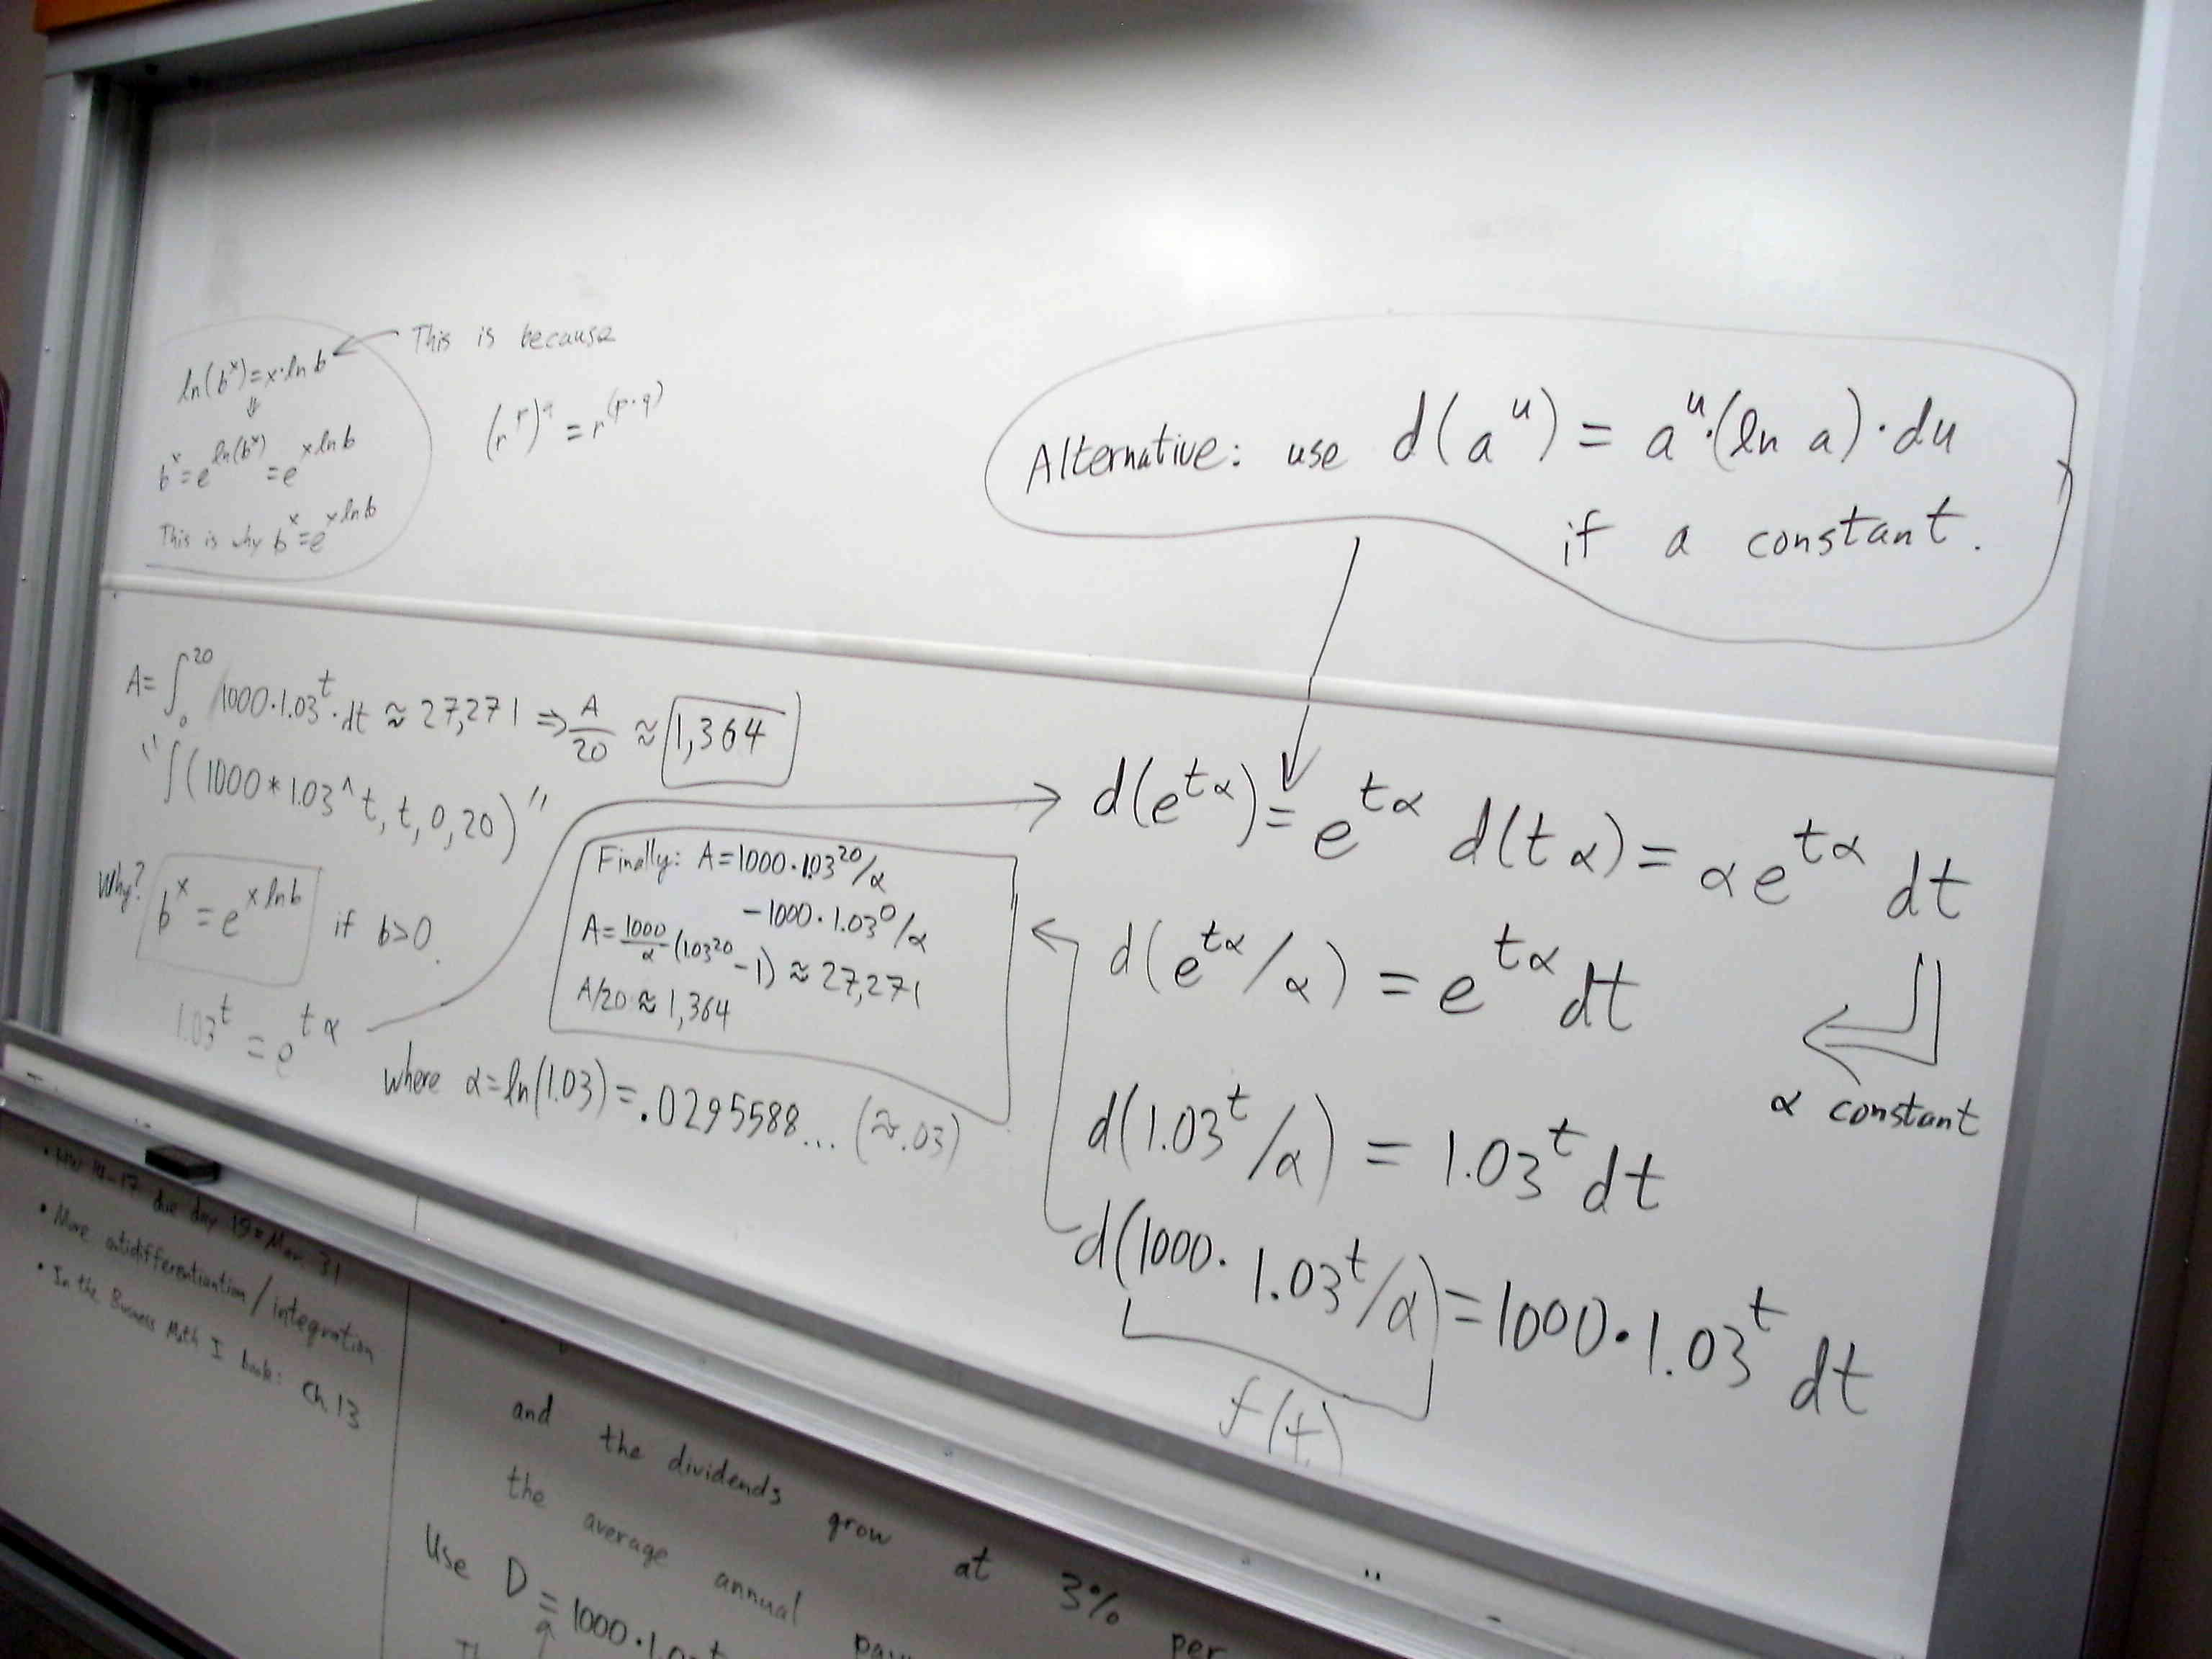 This is because
ln(b^x)=x·ln b
⇓
b^x=e^ln(b^x) =e^x ln b
This is why b^x=e^x ln b
(r^p)^q = r^(p·q)
Alternative: use d(a^u) = a^u·(ln a)·du
if a constant.
A= ∫_0^20 1000·1.03^t·dt ≈ 27,271 ⇒ A/20 ≈ 1,364
"∫(1000*1.03^t, t, 0, 20)"
Why? b^x = e^x ln b if b>0.
1.03^t = e^tα
where α=ln(1.03)=.0295588... (≈.03)
Finally: A=1000·1.03^20/α
-1000·1.03^0/α
A=1000/α (1.03^20 -1) ≈ 27,271
A/20 ≈ 1,364
d(e^tα) = e^tα d(tα) = αe^tα dt
d(e^tα/α) = e^tα dt
α constant
d(1.03^t/α) = 1.03^t dt
d(1000·1.03^t/α) = 1000·1.03^t dt
f(t)
17 due day 19 = Mar 31
• More antidifferentiation/integration
• In the Business Math I book: Ch 13
and the dividends grow at 3% per
the average annual
Use D = 1000·1.0